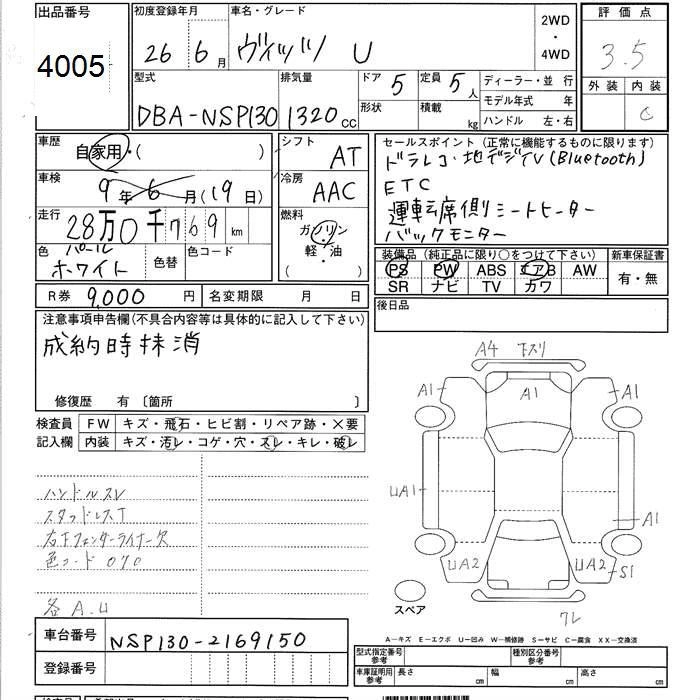 出品番号
4005
初度登録年月
26 6月
車名・グレード
ヴィッツ U
2WD
・
4WD
評価点
3.5
外装 内装
C
型式
DBA-NSP130
排気量
1320cc
ドア 5
定員 5人
形状
積載 kg
ディーラー・並行
モデル年式 年
ハンドル 左・右
車歴
自家用・( )
シフト
AT
車検
9年6月(19日)
冷房
AAC
走行
28万0千769km
燃料
ガソリン
軽・油
( )
色
パール
ホワイト
色替
色コード
R券 9,000円
名変期限 月 日
セールスポイント(正常に機能するものに限ります)
ドラレコ・地デジTV(Bluetooth)
ETC
運転席側シートヒーター
バックモニター
装備品(純正品に限り○をつけて下さい)
新車保証書
PS PW ABS エアB AW
SR ナビ TV カワ
有・無
後日品
注意事項申告欄(不具合内容等は具体的に記入して下さい)
成約時抹消
修復歴 有〔箇所 〕
検査員
記入欄
FW キズ・飛石・ヒビ割・リペア跡・×要
内装 キズ・汚レ・コゲ・穴・スレ・キレ・破レ
ハンドルスレ
スタッドレスT
右下フェンダーライナー欠
色コード 070
各A.U
A4 下スリ
A1
A1
A1
UA1
A1
UA2
UA2
S1
ワレ
スペア
A-キズ E-エクボ U-凹み W-補修跡 S-サビ C-腐食 XX-交換済
車台番号
NSP130-2169150
登録番号
型式指定番号
参考
種別区分番号
参考
車庫証明用
参考
長さ cm
幅 cm
高さ cm